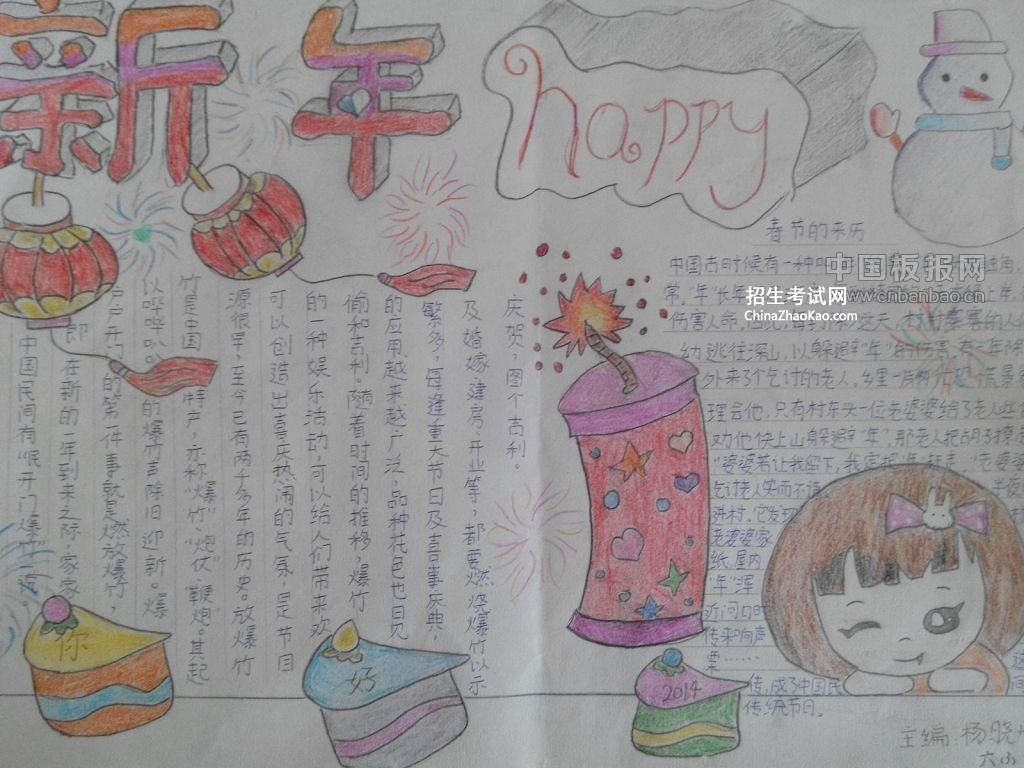 新年
happy
中国民间有"开门爆竹"一说。
即在新的一年到来之际,家家
户户开门的第一件事就是燃放爆竹,
以哔哔叭叭的爆竹声除旧迎新。爆
竹是中国特产,亦称"爆竹"、"炮仗"、"鞭炮"。其起
源很早,至今已有两千多年的历史。放爆竹
可以创造出喜庆热闹的气氛,是节日
的一种娱乐活动,可以给人们带来欢
愉和吉利。随着时间的推移,爆竹
的应用越来越广泛,品种花色也日见
繁多,每逢重大节日及喜事庆典,
及婚嫁、建房、开业等,都要燃烧爆竹以示
庆贺,图个吉利。
春节的来历
中国古时候有一种叫
中国板报网
常。"年"长年
招生考试网
www.cnbanbao.cn
ChinaZhaoKao.com
伤害人命,因此,每到除夕这天,村村寨寨的人们
幼逃往深山,以躲避"年"的伤害。有一年除
外来了个乞讨的老人,乡里一片
理会他,只有村东头一位老婆婆给了老人
劝他快上山躲避"年",那老人把胡子撩
"婆婆若让我留下,我定把"年"
乞讨老人笑而不语
进村。它发现
老婆婆家
纸,屋内
"年"浑
近门口时
传来响声
栗……
传,成了中国民间
传统节日。
你
好
2014
主编:杨晓
六